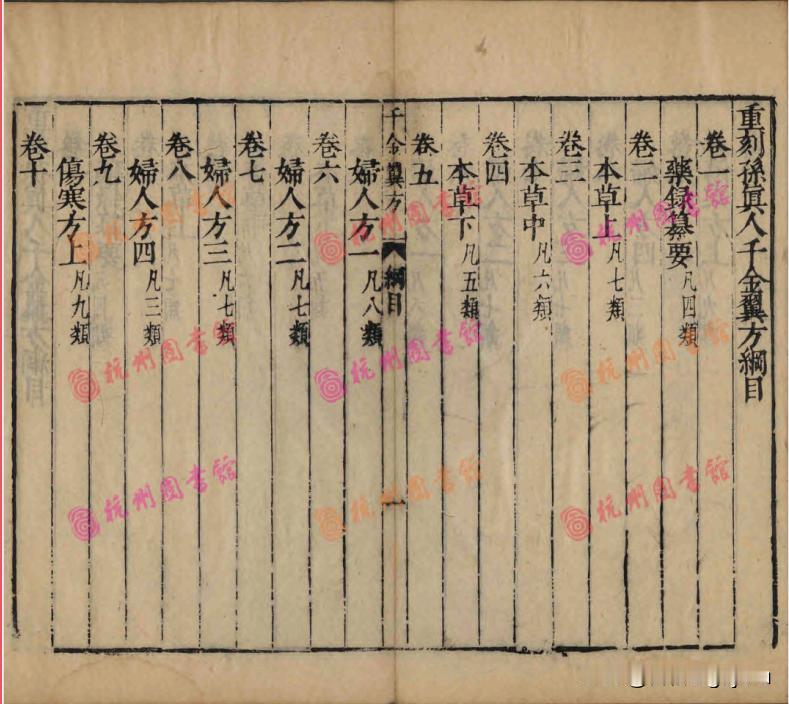 重刻孫眞人千金翼方綱目
卷一
藥録纂要凡四類
卷二
本草上凡七類
卷三
本草中凡六類
卷四
本草下凡五類
卷五
婦人方一凡八類
千金翼方 綱目 一
卷六
婦人方二凡七類
卷七
婦人方三凡七類
卷八
婦人方四凡三類
卷九
傷寒方上凡九類
卷十
杭州圖書館
杭州圖書館
杭州圖書館
杭州圖書館
杭州圖書館
杭州圖書館
杭州圖書館
杭州圖書館
杭州圖書館